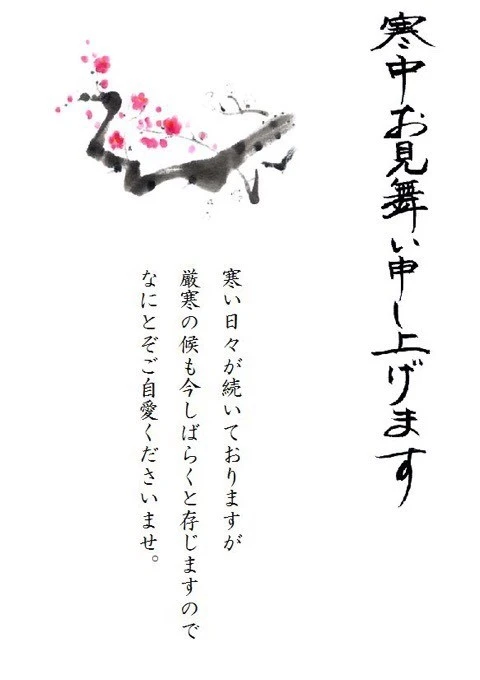 寒中お見舞い申し上げます
寒い日々が続いておりますが
厳寒の候も今しばらくと存じますので
なにとぞご自愛くださいませ。